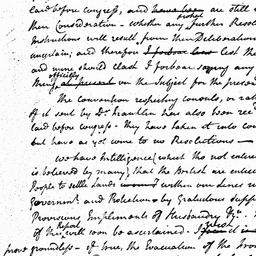 laid before Congress, and have been are still u
their Consideration - Whether any further Resolu
Instructions will result from their Deliberations
uncertain; and therefore I forbear lest the
and mine should clash I forbear saying any
thing officially at present on the Subject for the presen
The Convention respecting Consuls, or rat
of it sent by Dr. Franklin has also been rec
laid before Congress - they have taken it into con
but have as yet come to no Resolutions —
We have Intelligence (which tho not entire
is believed by many) that the British are entici
People to settle Lands within our Lines
Government and Protection by Gratuitous Supp
Provisions, Implements of Husbandry &c.
of this Report will soon be ascertained -
prove groundless - of Time, the Evacuation of the Fron